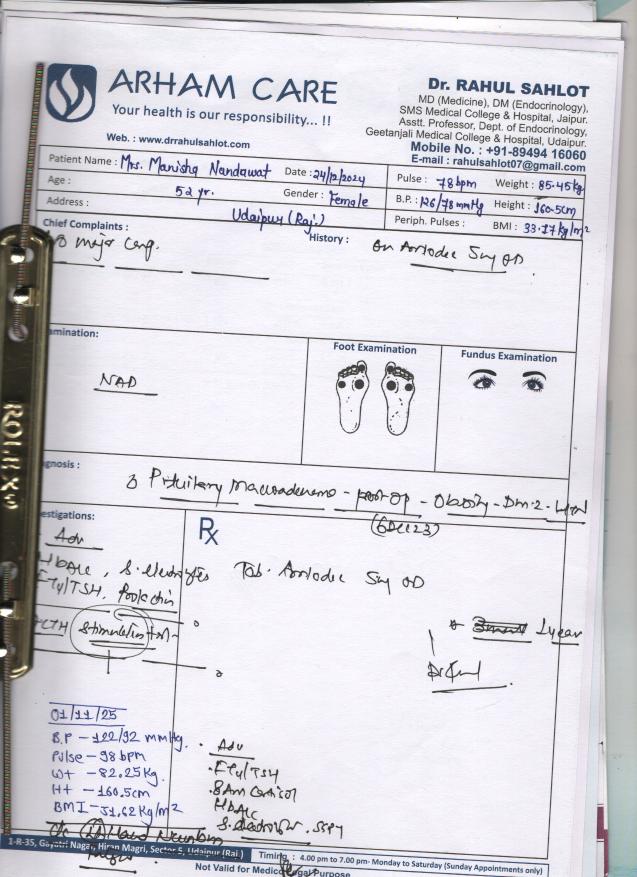 ARHAM CARE
Your health is our responsibility... !!
Web. : www.drrahulsahlot.com
Dr. RAHUL SAHLOT
MD (Medicine), DM (Endocrinology),
SMS Medical College & Hospital, Jaipur.
Asstt. Professor, Dept. of Endocrinology,
Geetanjali Medical College & Hospital, Udaipur.
Mobile No. : +91-89494 16060
E-mail : rahulsahlot07@gmail.com
Patient Name : Mrs. Manisha Nandawat Date : 24/12/2024
Age : 52 yr. Gender : Female
Address : Udaipur (Raj.)
Pulse : 78 bpm Weight : 85.45 kg
B.P. : 126/78 mmHg Height : 160.5cm
Periph. Pulses : BMI : 33.17 kg/m²
Chief Complaints :
major
History :
On OD
amination:
NAD
Foot Examination
Fundus Examination
agnosis :
Pituitary Macroadenoma - post-op - Obesity - Dm-2 -
(6 Dec 23)
estigations:
Adv
HbA1c, S. electrolytes
FT4/TSH, Prolactin
ACTH Stimulation
Rx
Tab. OD
1 year
01/11/25
B.P - 122/92 mmHg.
Pulse - 98 bpm
Wt - 82.25 Kg.
Ht - 160.5cm
BMI - 31.62 Kg/m²
Adv
FT4/TSH
8Am Cortisol
HbA1c
1-R-35, Gayatri Nagar, Hiran Magri, Sector 5, Udaipur (Raj.)
Timing : 4.00 pm to 7.00 pm- Monday to Saturday (Sunday Appointments only)
Not Valid for Medico Legal Purpose
ROLEX